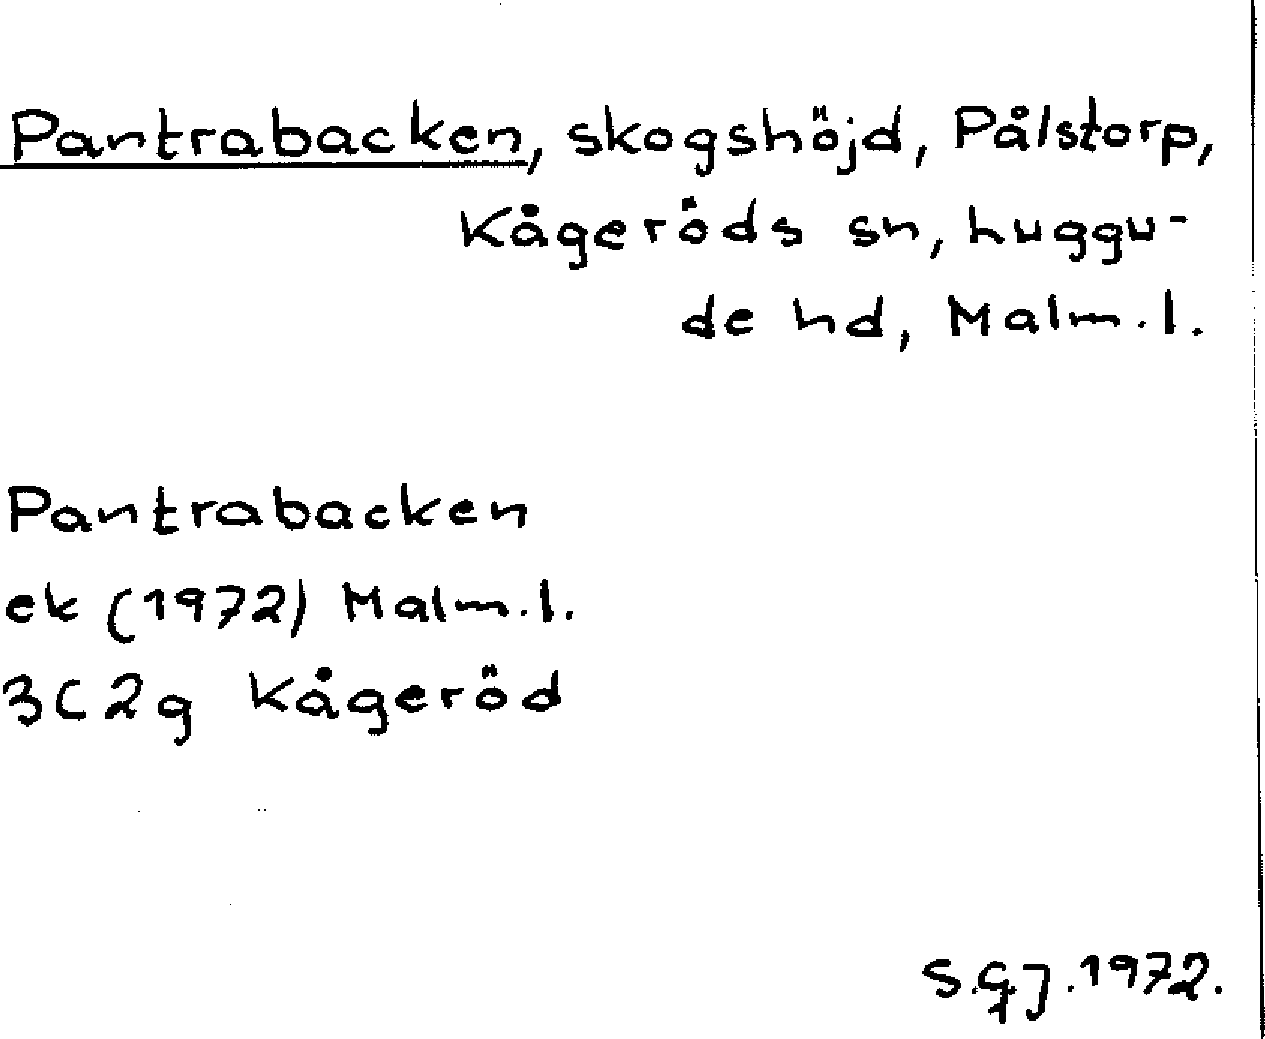 Pantrabacken, skogshöjd, Pålstorp,
Kågeröds sn, huggu-
de hd, Malm.l.
Pantrabacken
ek (1972) Malm.l.
3C2g Kågeröd
S.GJ.1972.